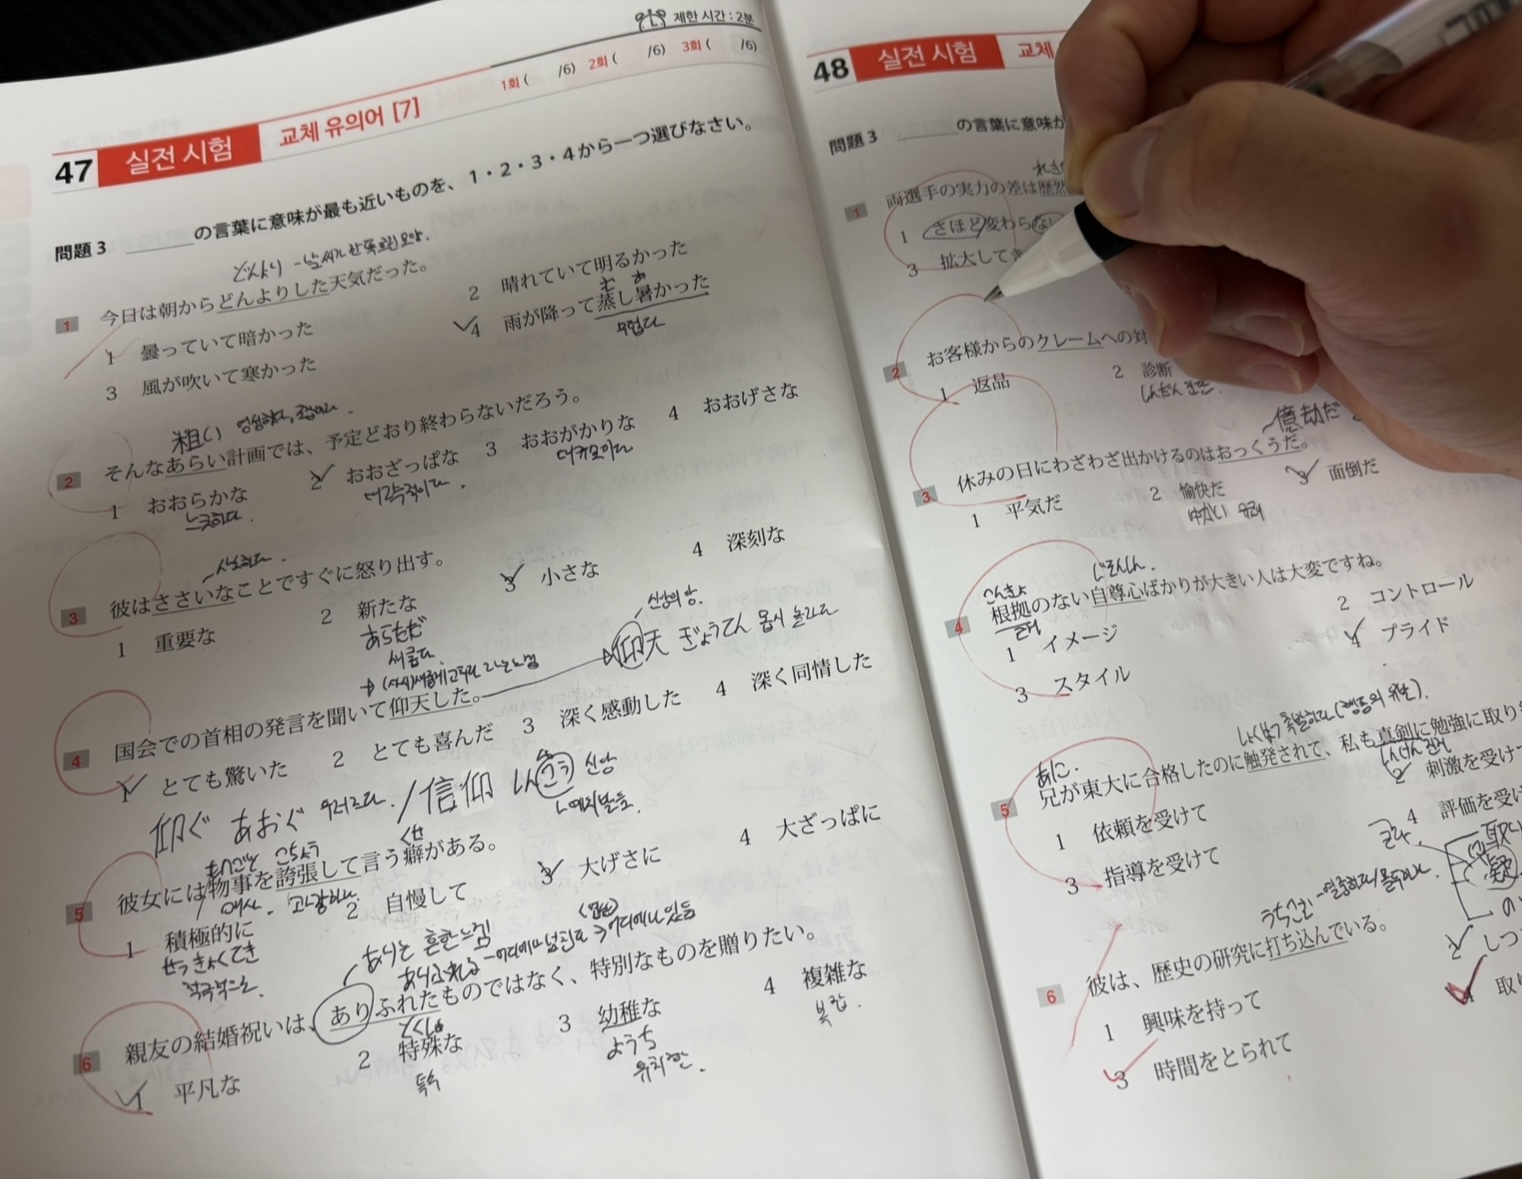 제한 시간 : 2분
1회 ( /6) 2회 ( /6) 3회 ( /6)
47 실전 시험 교체 유의어 [7]
問題 3 ______の言葉に意味が最も近いものを、1・2・3・4から一つ選びなさい。
どんより
1 今日は朝からどんよりした天気だった。
1 曇っていて暗かった
2 晴れていて明るかった
む あ
3 風が吹いて寒かった
4 雨が降って蒸し暑かった
무덥다
粗い
2 そんなあらい計画では、予定どおり終わらないだろう。
1 おおらかな
2 おおざっぱな
3 おおがかりな
4 おおげさな
느긋하다.
대규모이다
3 彼はささいなことですぐに怒り出す。
1 重要な
2 新たな
3 小さな
4 深刻な
あらただ
새롭다
신앙의 앙.
仰天 ぎょうてん 몹시 놀라다
4 国会での首相の発言を聞いて仰天した。
1 とても驚いた
2 とても喜んだ
3 深く感動した
4 深く同情した
仰ぐ あおぐ 우러르다. / 信仰 しんこう 신앙
ものごと こちょう くせ
5 彼女には物事を誇張して言う癖がある。
1 積極的に
2 自慢して
3 大げさに
4 大ざっぱに
せっきょくてき
적극적으로.
ありふれる
6 親友の結婚祝いは、ありふれたものではなく、特別なものを贈りたい。
とくしゅ
1 平凡な
2 特殊な
3 幼稚な
4 複雑な
특수
ようち
유치한.
복잡.
48 실전 시험 교체
問題 3 ______の言葉に意味が
1 両選手の実力の差は歴然
1 さほど変わらない
3 拡大してき
2 お客様からのクレームへの対
1 返品
2 診断
しんだん 진단.
億劫だ
3 休みの日にわざわざ出かけるのはおっくうだ。
1 平気だ
2 愉快だ
3 面倒だ
ゆかい 유쾌
こんきょ じそんしん.
4 根拠のない自尊心ばかりが大きい人は大変ですね。
근거
1 イメージ
2 コントロール
3 スタイル
4 プライド
しょくはつ 촉발하다(행동의 유발).
あに.
5 兄が東大に合格したのに触発されて、私も真剣に勉強に取り
しんけん
1 依頼を受けて
2 刺激を受けて
3 指導を受けて
4 評価を受け
うちこむ
6 彼は、歴史の研究に打ち込んでいる。
1 興味を持って
2 しつ
3 時間をとられて
4 取り